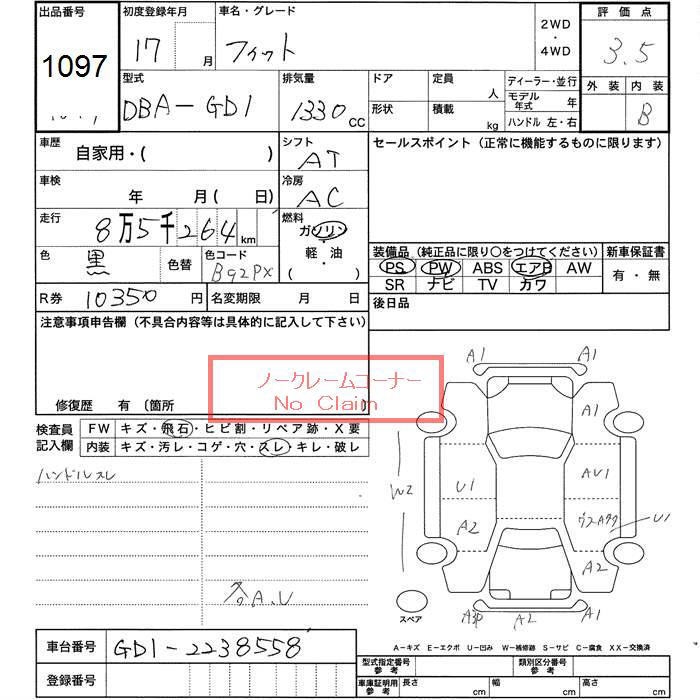 出品番号 初度登録年月 車名・グレード 2WD・4WD 評価点
1097 17 月 フィット 3.5
型式 排気量 ドア 定員 人 ディーラー・並行 外装 内装
DBA-GD1 1330 CC 形状 積載 kg モデル年式 年 B
ハンドル 左・右
車歴 自家用・( ) シフト AT セールスポイント (正常に機能するものに限ります)
車検 年 月( 日) 冷房 AC
走行 8万5千264 km 燃料 ガソリン・軽・油 ( )
色 黒 色替 色コード B92PX
装備品 (純正品に限り○をつけてください) 新車保証書
PS PW ABS エアB AW 有・無
SR ナビ TV カワ
R券 10350 円 名変期限 月 日 後日品
注意事項申告欄 (不具合内容等は具体的に記入して下さい)
ノークレームコーナー
No Claim
修復歴 有 (箇所 )
検査員記入欄 FW キズ・飛石・ヒビ割・リペア跡・X要
内装 キズ・汚レ・コゲ・穴・スレ・キレ・破レ
ハンドルスレ
各A.U
A1 A1
A1
W2 U1 AU1
A2 U1
A2
A2 A1
スペア
A-キズ E-エクボ U-凹み W-補修跡 S-サビ C-腐食 XX-交換済
車台番号 GD1-2238558
登録番号
型式指定番号 参考 類別区分番号 参考
車庫証明用 参考 長さ cm 幅 cm 高さ cm